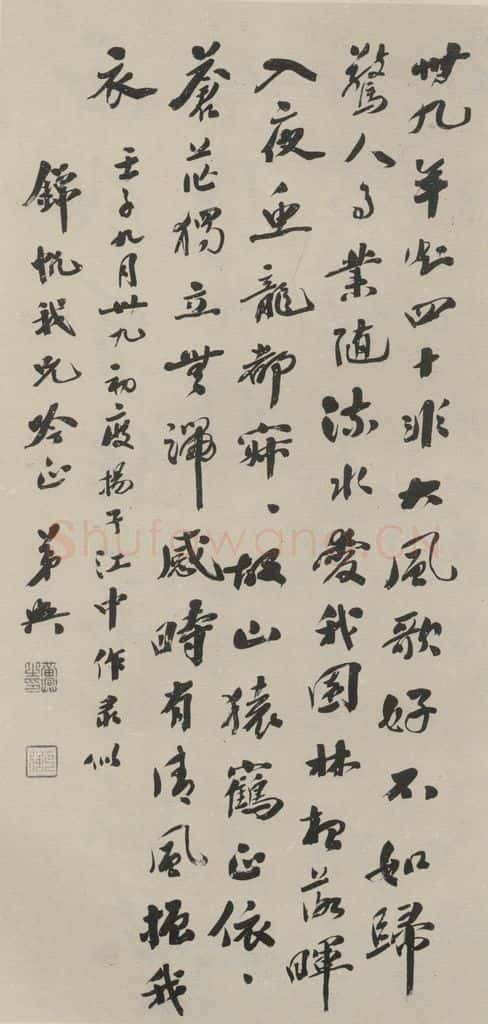 卅九年知四十非大風歌好不如歸
驚人事業隨流水愛我園林想落暉
入夜魚龍都寂、故山猿鶴正依、
蒼茫獨立無端感時有清風振我
衣
壬子九月卅九初度揚子江中作录似
錦帆我兄吟正 弟興
Shufawang.CN